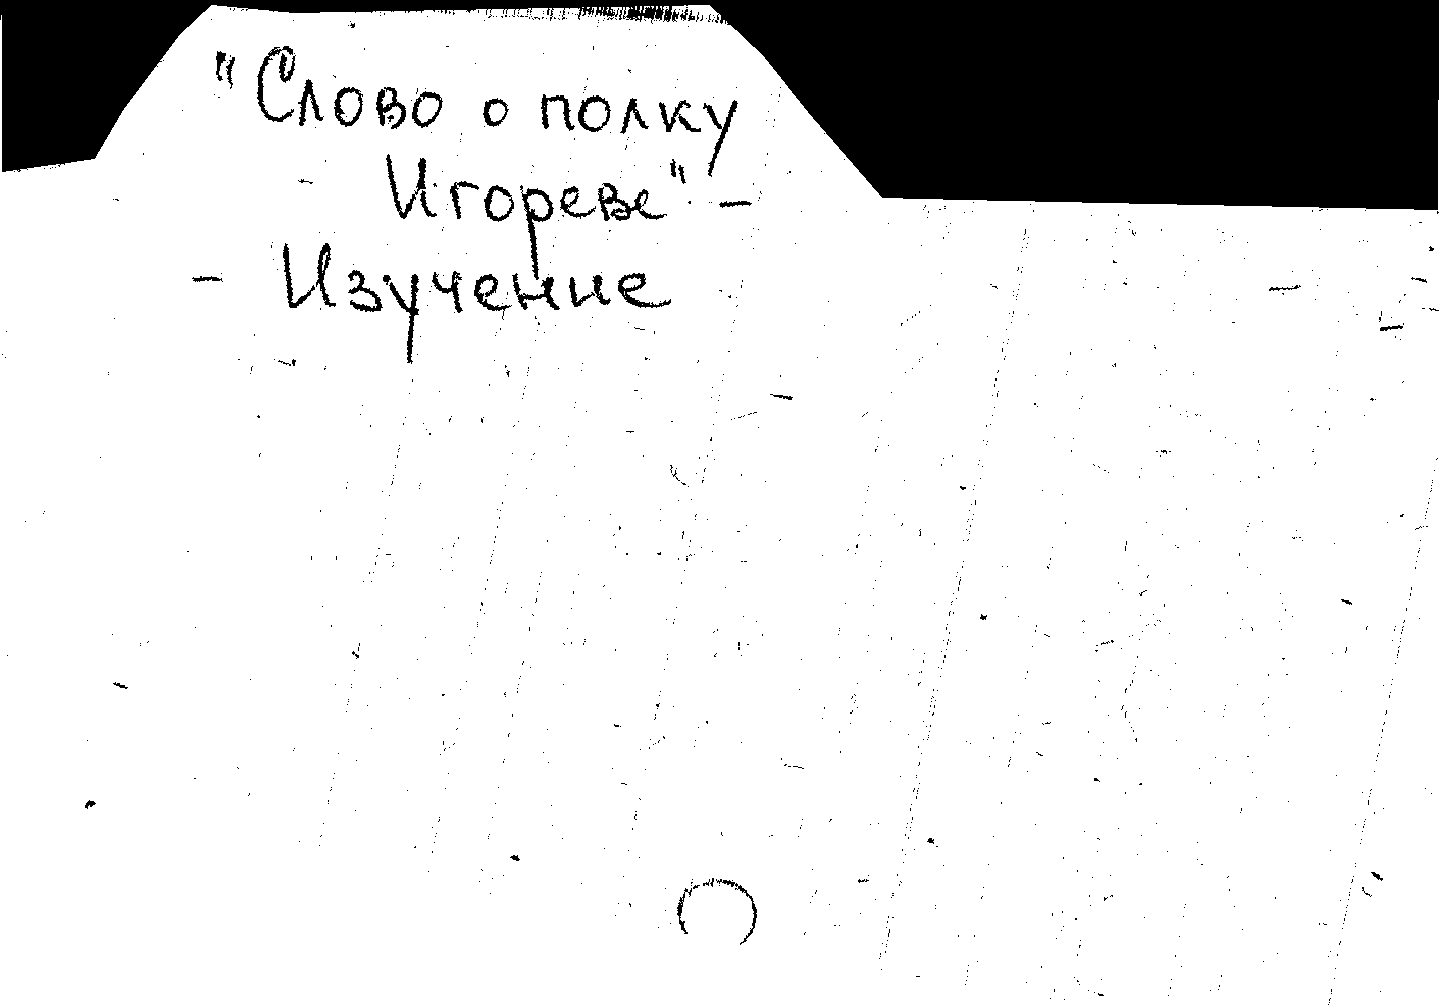 "Слово о полку
Игореве" -
- Изучение